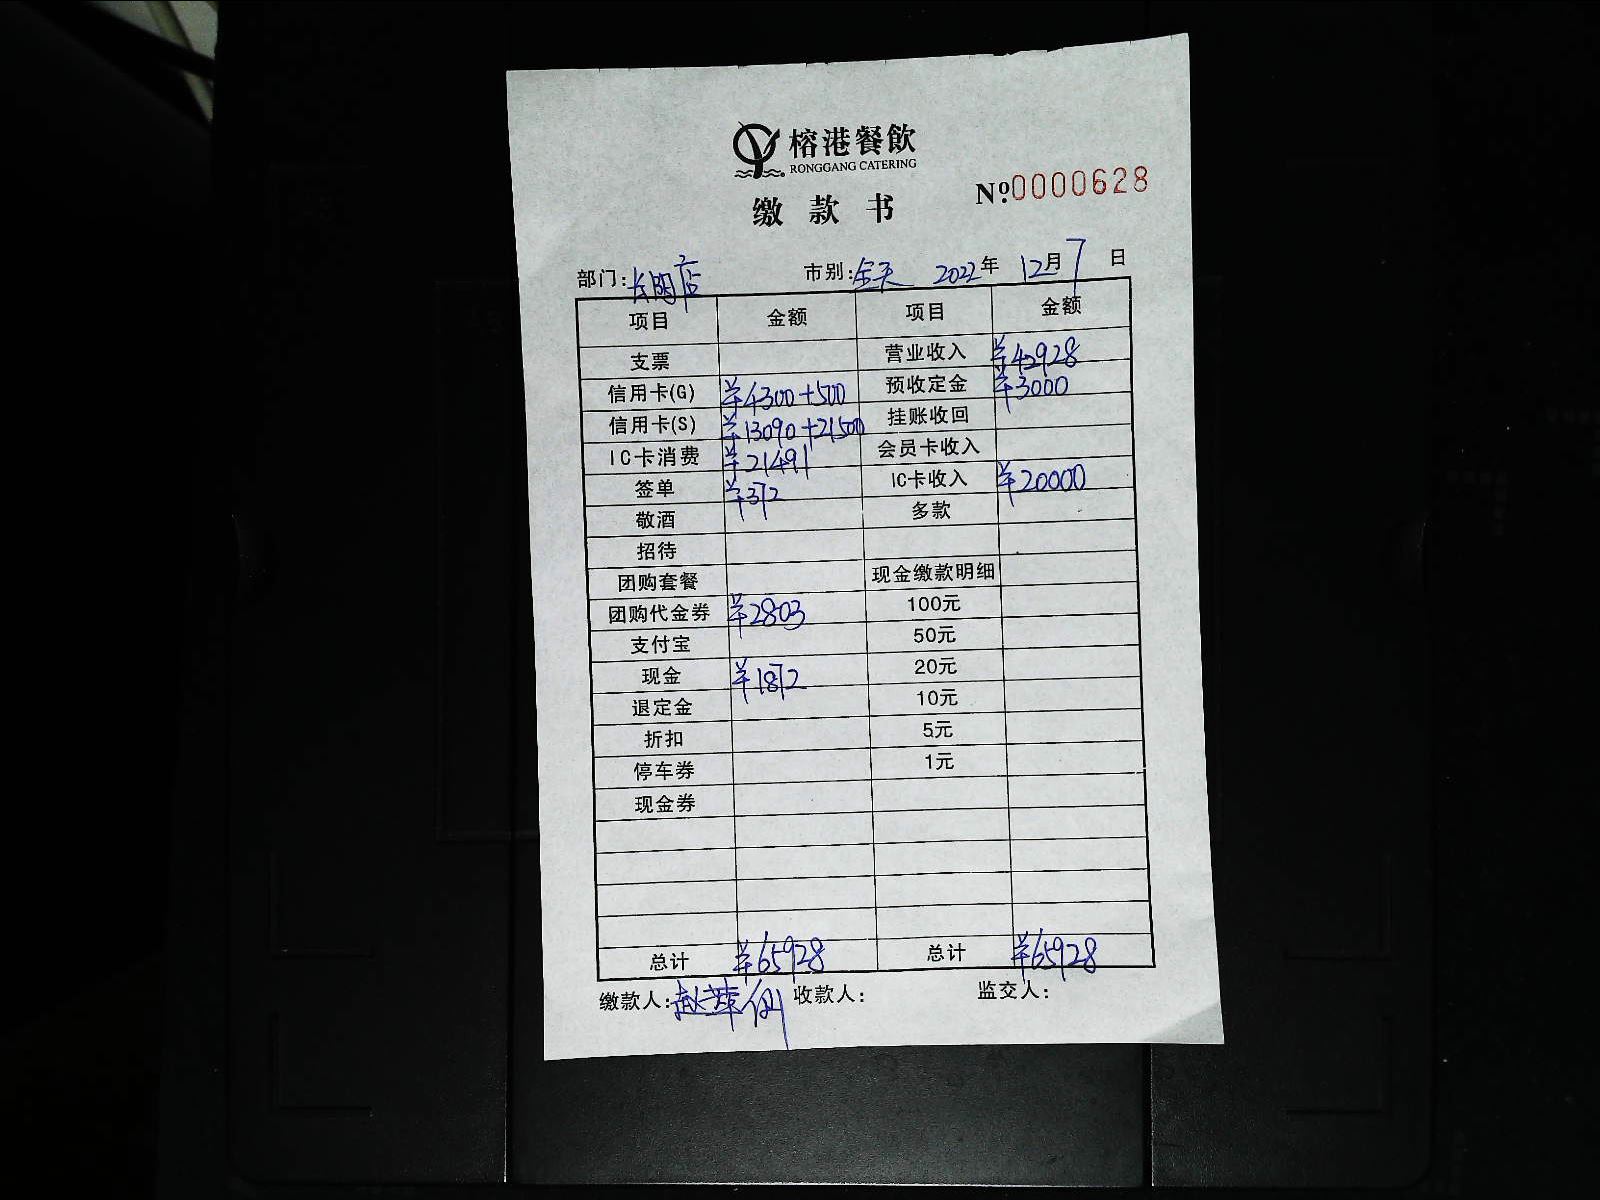 榕港餐飲
RONGGANG CATERING
缴款书
№0000628
部门: 店 市别:全天 2022年 12月7日
项目 金额 项目 金额
支票 营业收入 ¥42928
信用卡(G) ¥4300+500 预收定金 ¥3000
信用卡(S) ¥13090+21500 挂账收回
IC卡消费 ¥21491 会员卡收入
签单 ¥372 IC卡收入 ¥20000
敬酒 多款
招待
团购套餐 现金缴款明细
团购代金券 ¥2803 100元
支付宝 50元
现金 ¥1872 20元
退定金 10元
折扣 5元
停车券 1元
现金券
总计 ¥65928 总计 ¥65928
缴款人:赵 收款人: 监交人: